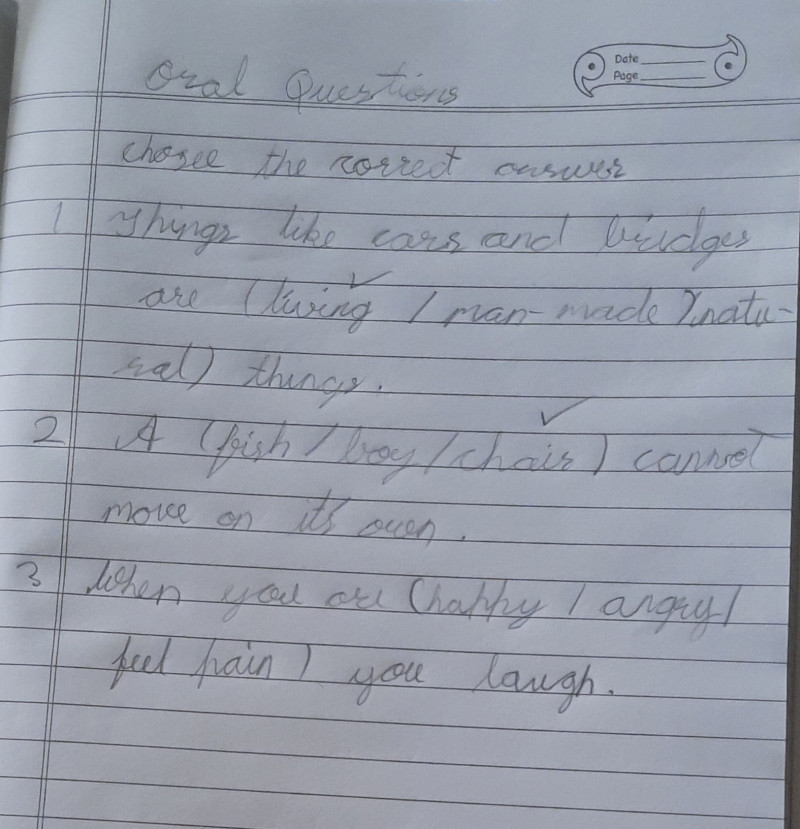 Date
Page
Oral Questions
chosee the correct answer
1 Things like cars and bridges
are (living / man-made / natu-
ral) things.
2 A (fish / boy / chair) cannot
move on it's own.
3 When you are (happy / angry /
feel pain) you laugh.